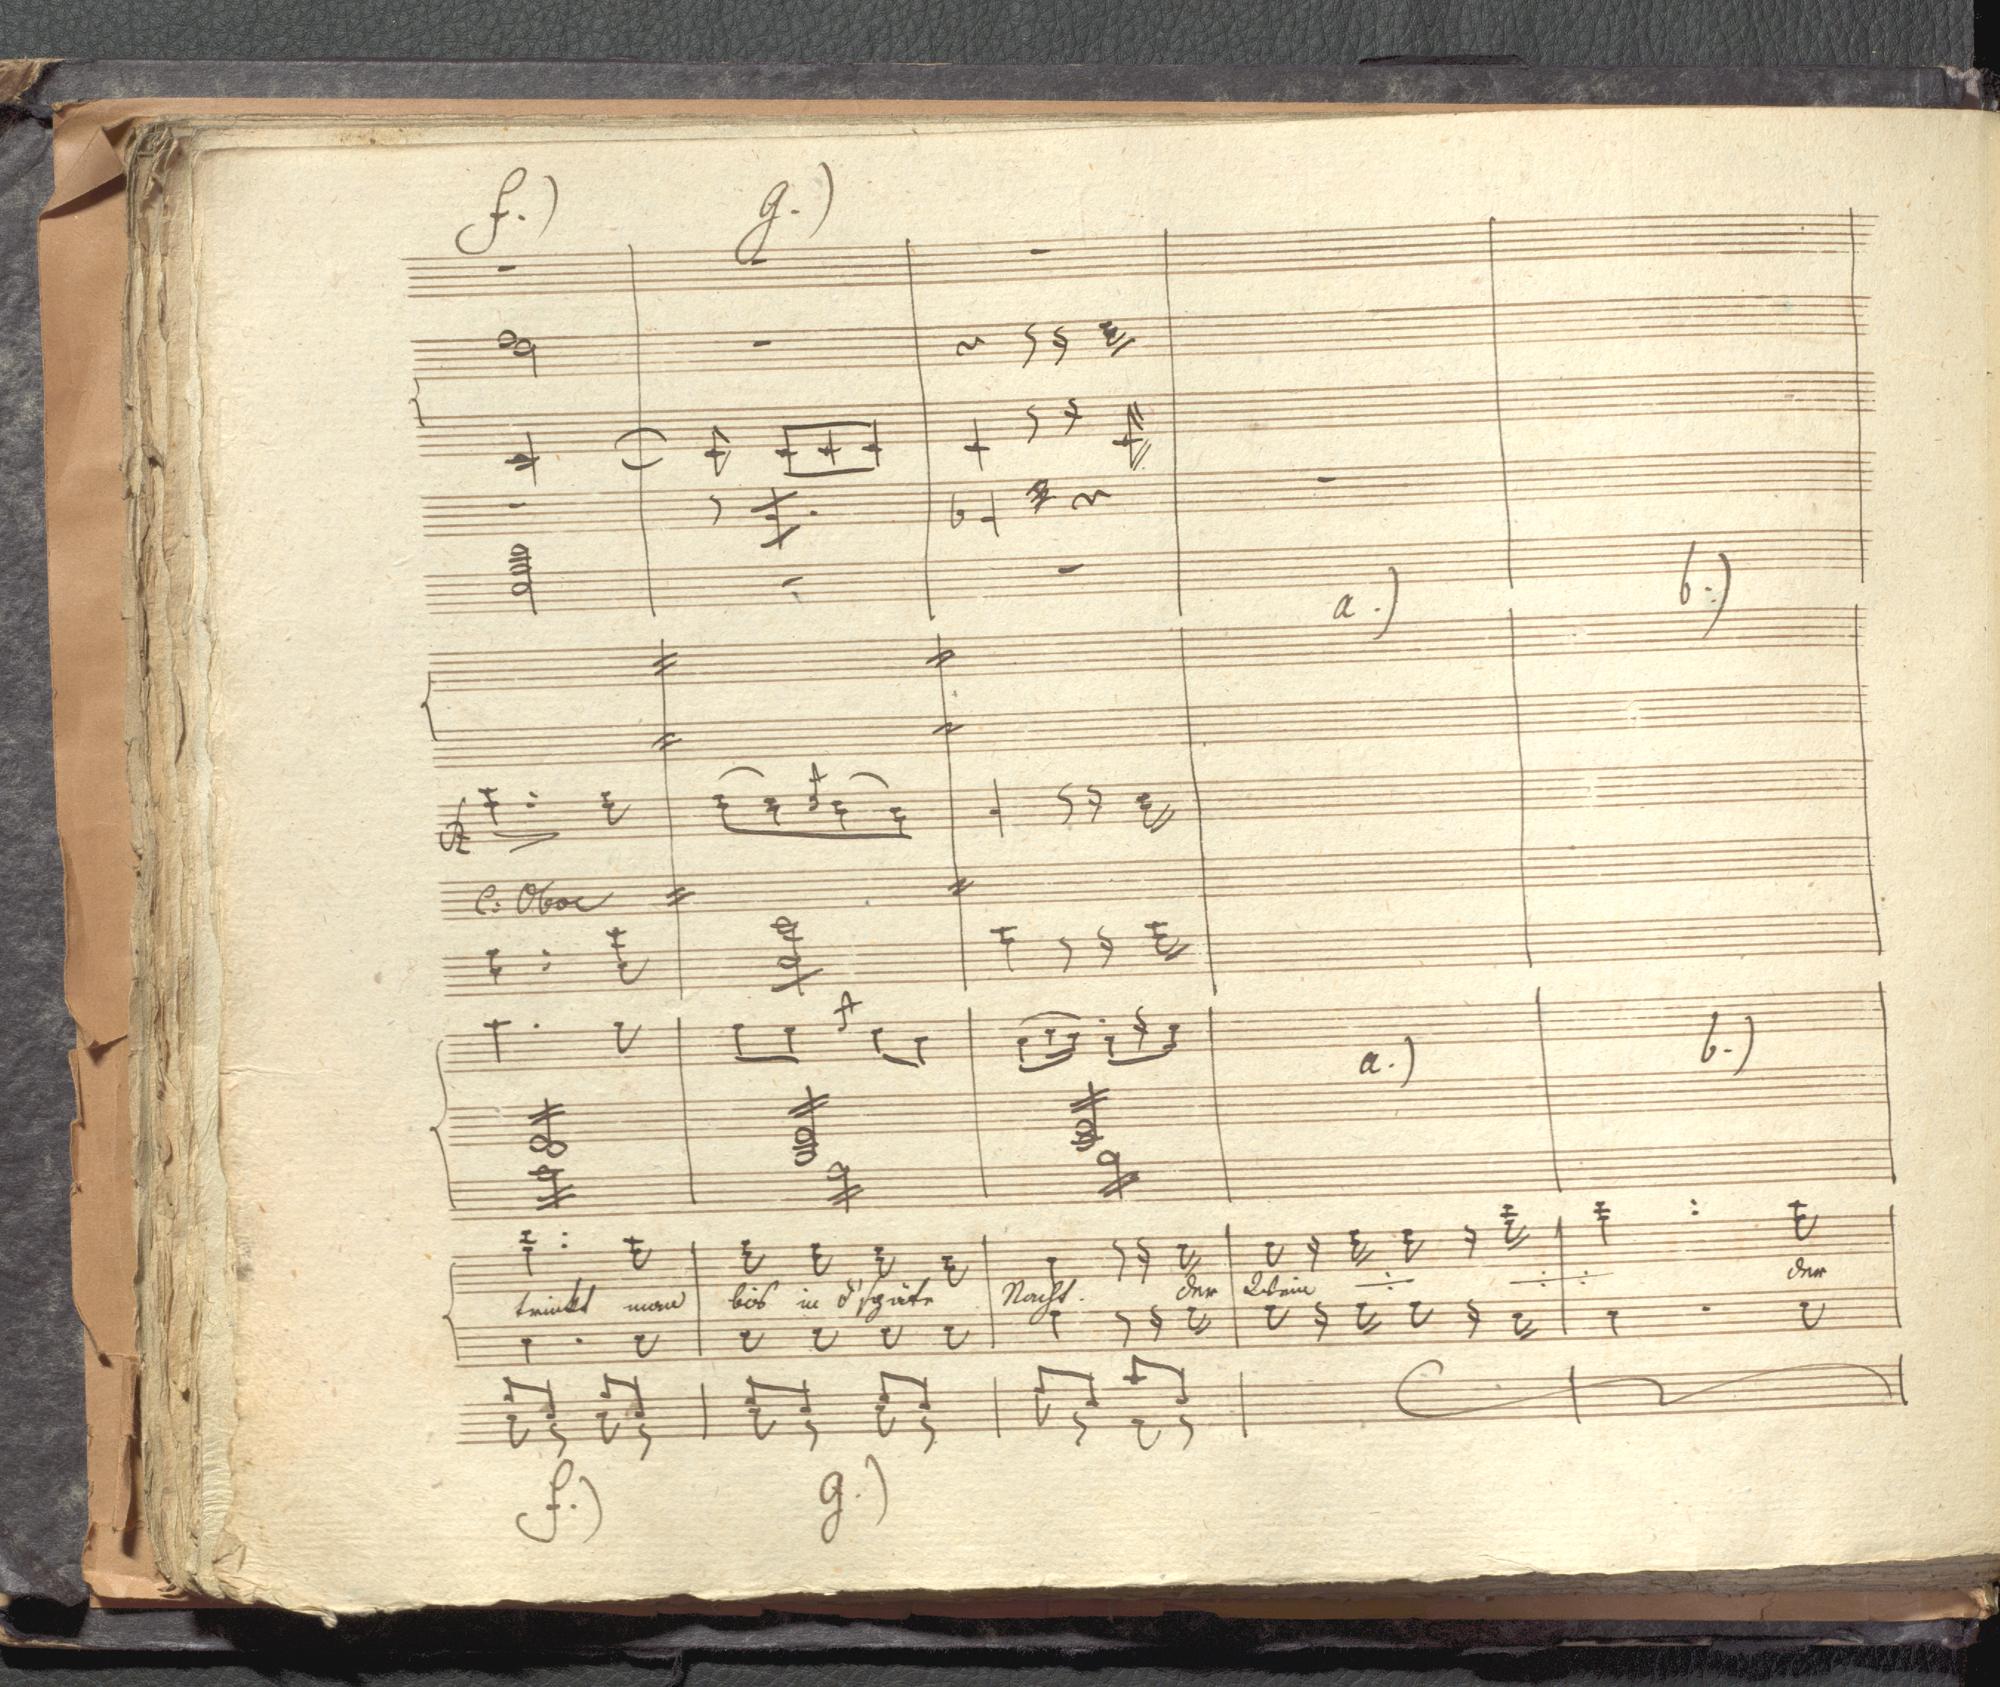 f.) g.)
a.) b.)
C: Oboe
a.) b.)
trinkt man bis in d'späte Nacht. der Wein der
f.) g.)